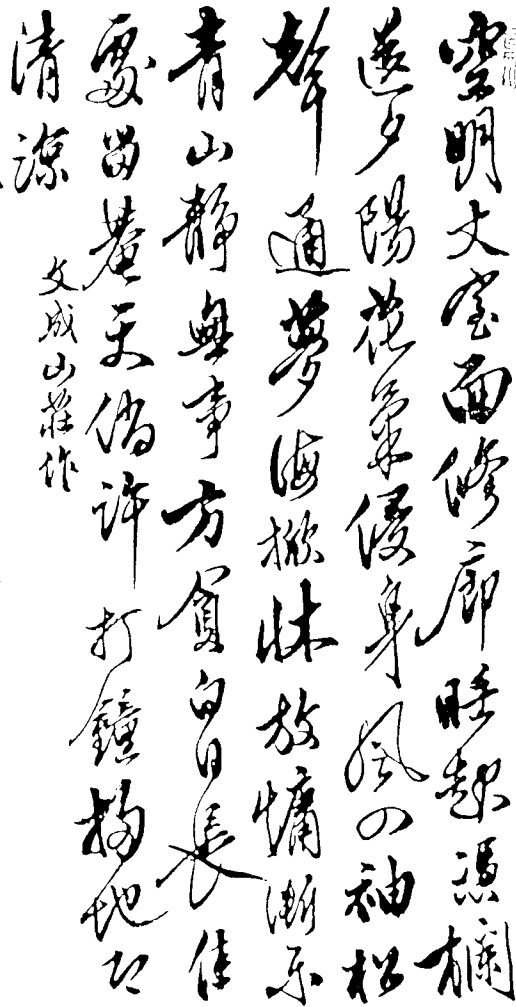 空明丈室面修廊睡起憑欄
送夕陽花氣侵身風入袖松
聲通夢海掀牀放慵漸樂
青山靜無事方貪白日長佳
處留菴天倘許打鐘掃地
清涼
文成山莊作